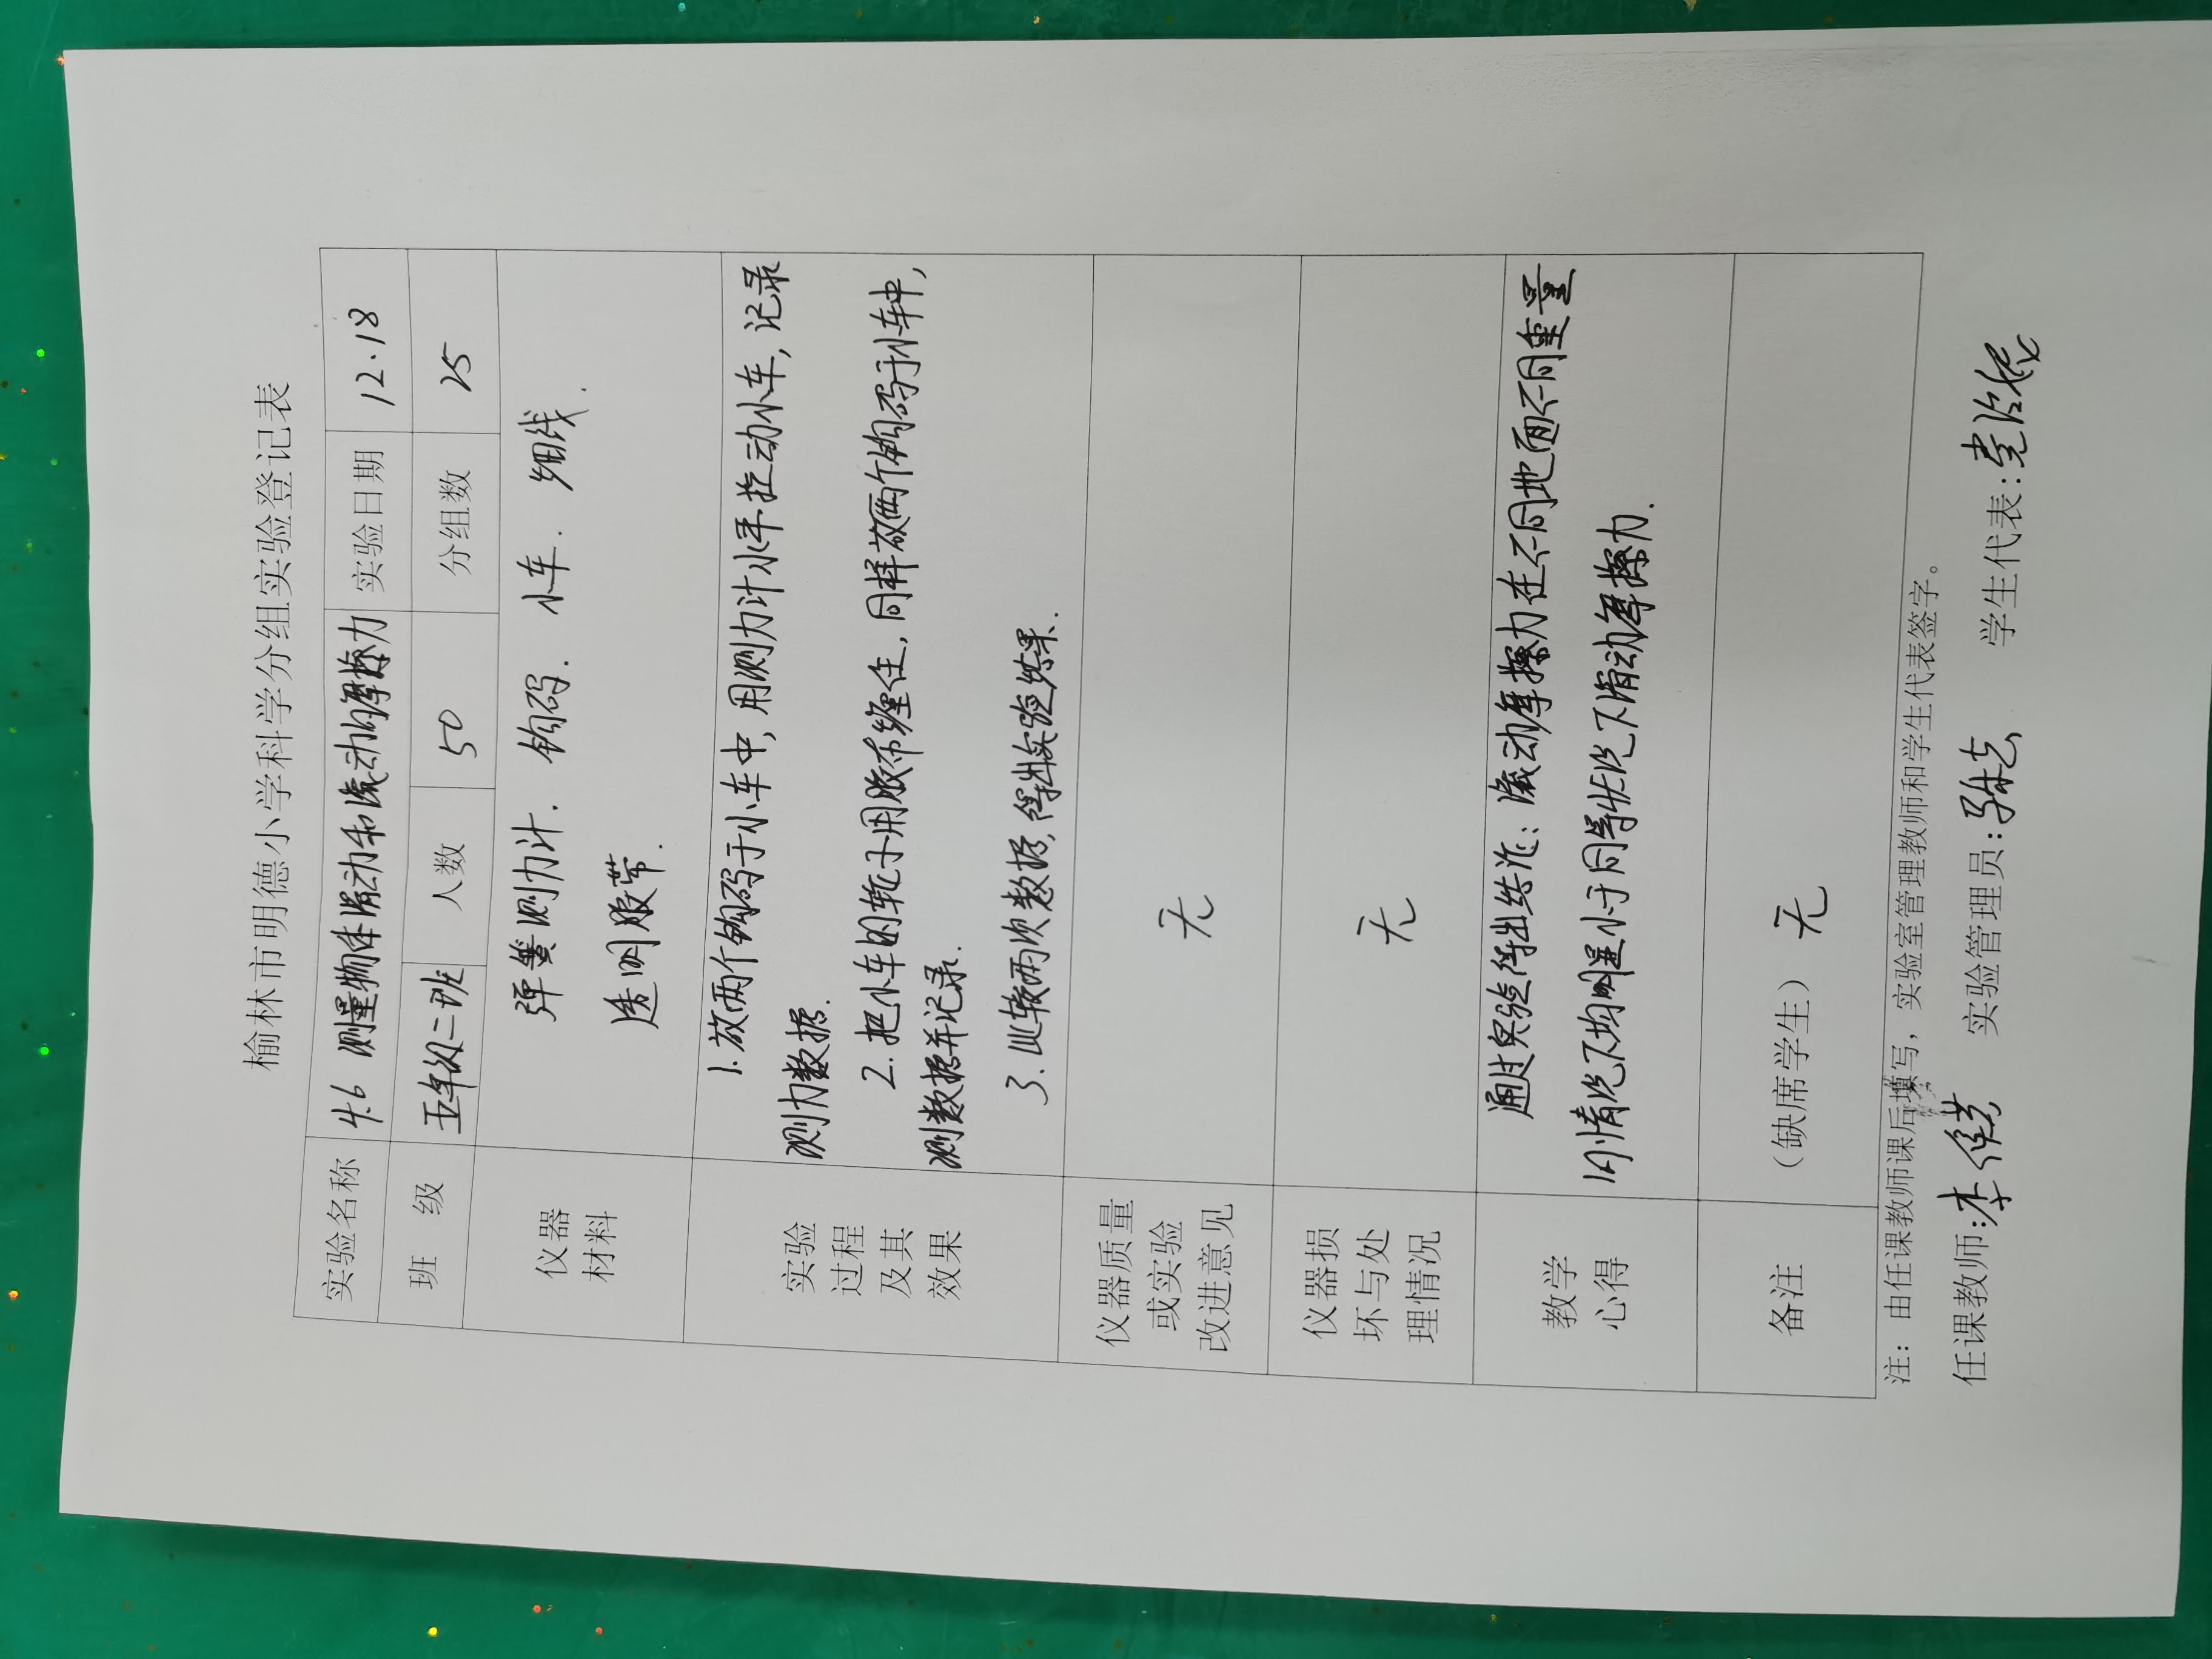 榆林市明德小学科学分组实验登记表
实验名称 4.6 测量物体滑动和滚动的摩擦力 实验日期 12.18
班 级 五年级二班 人数 50 分组数 25
仪器
材料
弹簧测力计. 钩码. 小车. 细线.
透明胶带.
实验
过程
及其
效果
1. 放两个钩码于小车中, 用测力计水平拉动小车, 记录
测力数据.
2. 把小车的轮子用胶布缠住, 同样放两个钩码于小车中,
测数据并记录.
3. 比较两次数据, 得出实验结果.
仪器质量
或实验
改进意见
无
仪器损
坏与处
理情况
无
教学
心得
通过实验得出结论: 滚动摩擦力在不同地面不同重量
的情况下均明显小于同等状况下滑动摩擦力.
备注
(缺席学生) 无
注: 由任课教师课后填写, 实验室管理教师和学生代表签字。
任课教师: 实验管理员: 学生代表: